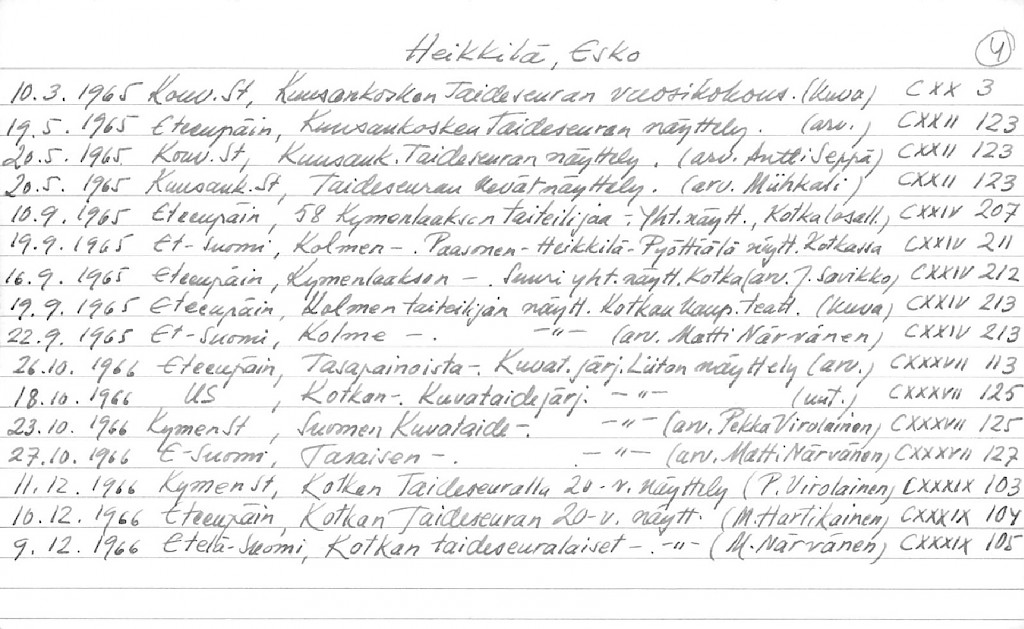 Heikkilä, Esko
4
10.3.1965 Kouv.St, Kuusankosken Taideseuran vuosikokous. (kuva) CXX 3
19.5.1965 Eteenpäin, Kuusankosken Taideseuran näyttely. (arv.) CXXII 123
20.5.1965 Kouv.St, Kuusank.Taideseuran näyttely. (arv. Antti Seppä) CXXII 123
20.5.1965 Kuusank.St, Taideseuran kevätnäyttely. (arv. Mühkali) CXXII 123
10.9.1965 Eteenpäin, 58 Kymenlaakson taiteilijaa - Yht.näytt., Kotka(osall.) CXXIV 207
19.9.1965 Et-Suomi, Kolmen -. Paasonen-Heikkilä-Pyöttiälä näytt. Kotkassa CXXIV 211
16.9.1965 Eteenpäin, Kymenlaakson -. Suuri yht.näytt.Kotka(arv. J. Savikko) CXXIV 212
19.9.1965 Eteenpäin, Kolmen taiteilijan näytt. Kotkan kaup.teatt. (kuva) CXXIV 213
22.9.1965 Et-Suomi, Kolme -. -"- (arv. Matti Närvänen) CXXIV 213
26.10.1966 Eteenpäin, Tasapainoista-. Kuvat.järj.Liiton näyttely (arv.) CXXXVII 113
18.10.1966 US, Kotkan-. Kuvataidejärj. -"- (uut.) CXXXVII 125
23.10.1966 KymenSt, Suomen Kuvataide-. -"- (arv. Pekka Virolainen) CXXXVII 125
27.10.1966 E-Suomi, Tasaisen -. -"- (arv. Matti Närvänen) CXXXVII 127
11.12.1966 KymenSt, Kotkan Taideseuralla 20-v. näyttely (P.Virolainen) CXXXIX 103
10.12.1966 Eteenpäin, Kotkan Taideseuran 20-v. näytt. (M.Hartikainen) CXXXIX 104
9.12.1966 Etelä-Suomi, Kotkan taideseuralaiset -. -"- (M.Närvänen) CXXXIX 105